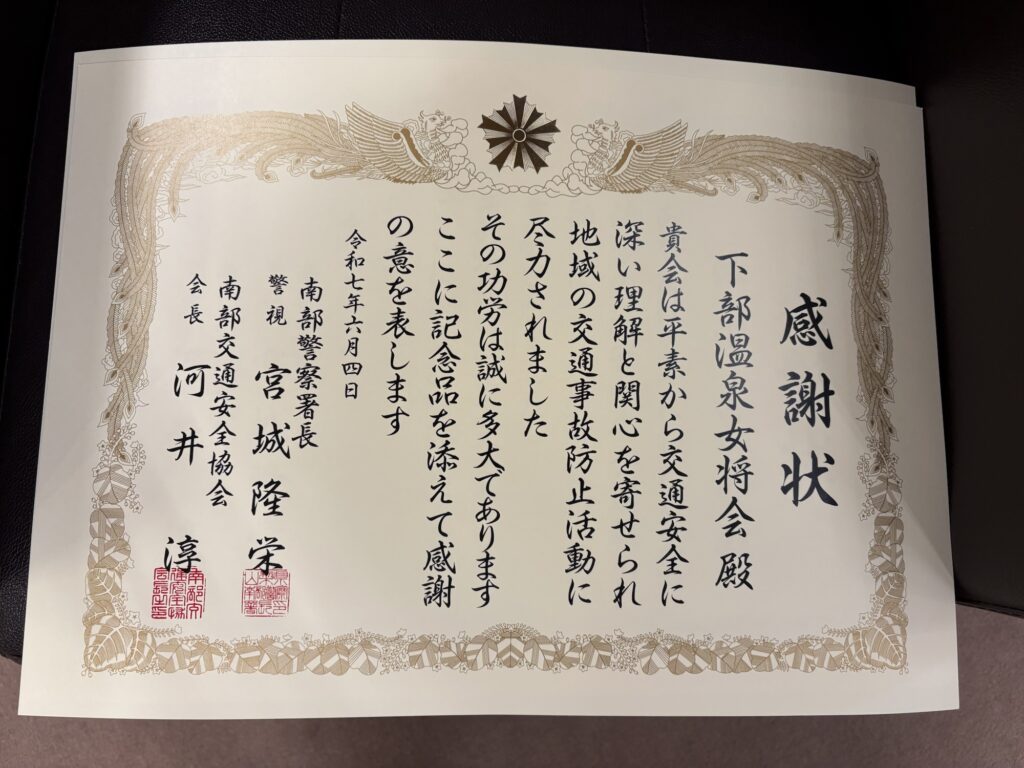 感謝状
下部温泉女将会 殿
貴会は平素から交通安全に
深い理解と関心を寄せられ
地域の交通事故防止活動に
尽力されました
その功労は誠に多大であります
ここに記念品を添えて感謝
の意を表します
令和七年六月四日
南部警察署長
警視 宮城隆栄
南部交通安全協会
会長 河井淳